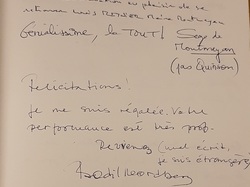 au plaisir de se
Génialissime, le TOUT!
Serge de
Montmeyan
(pas Quinson)
Félicitations!
Je me suis régalée. Votre
performance est très prof.
Revenez (mal écrit,
je suis étrangère)